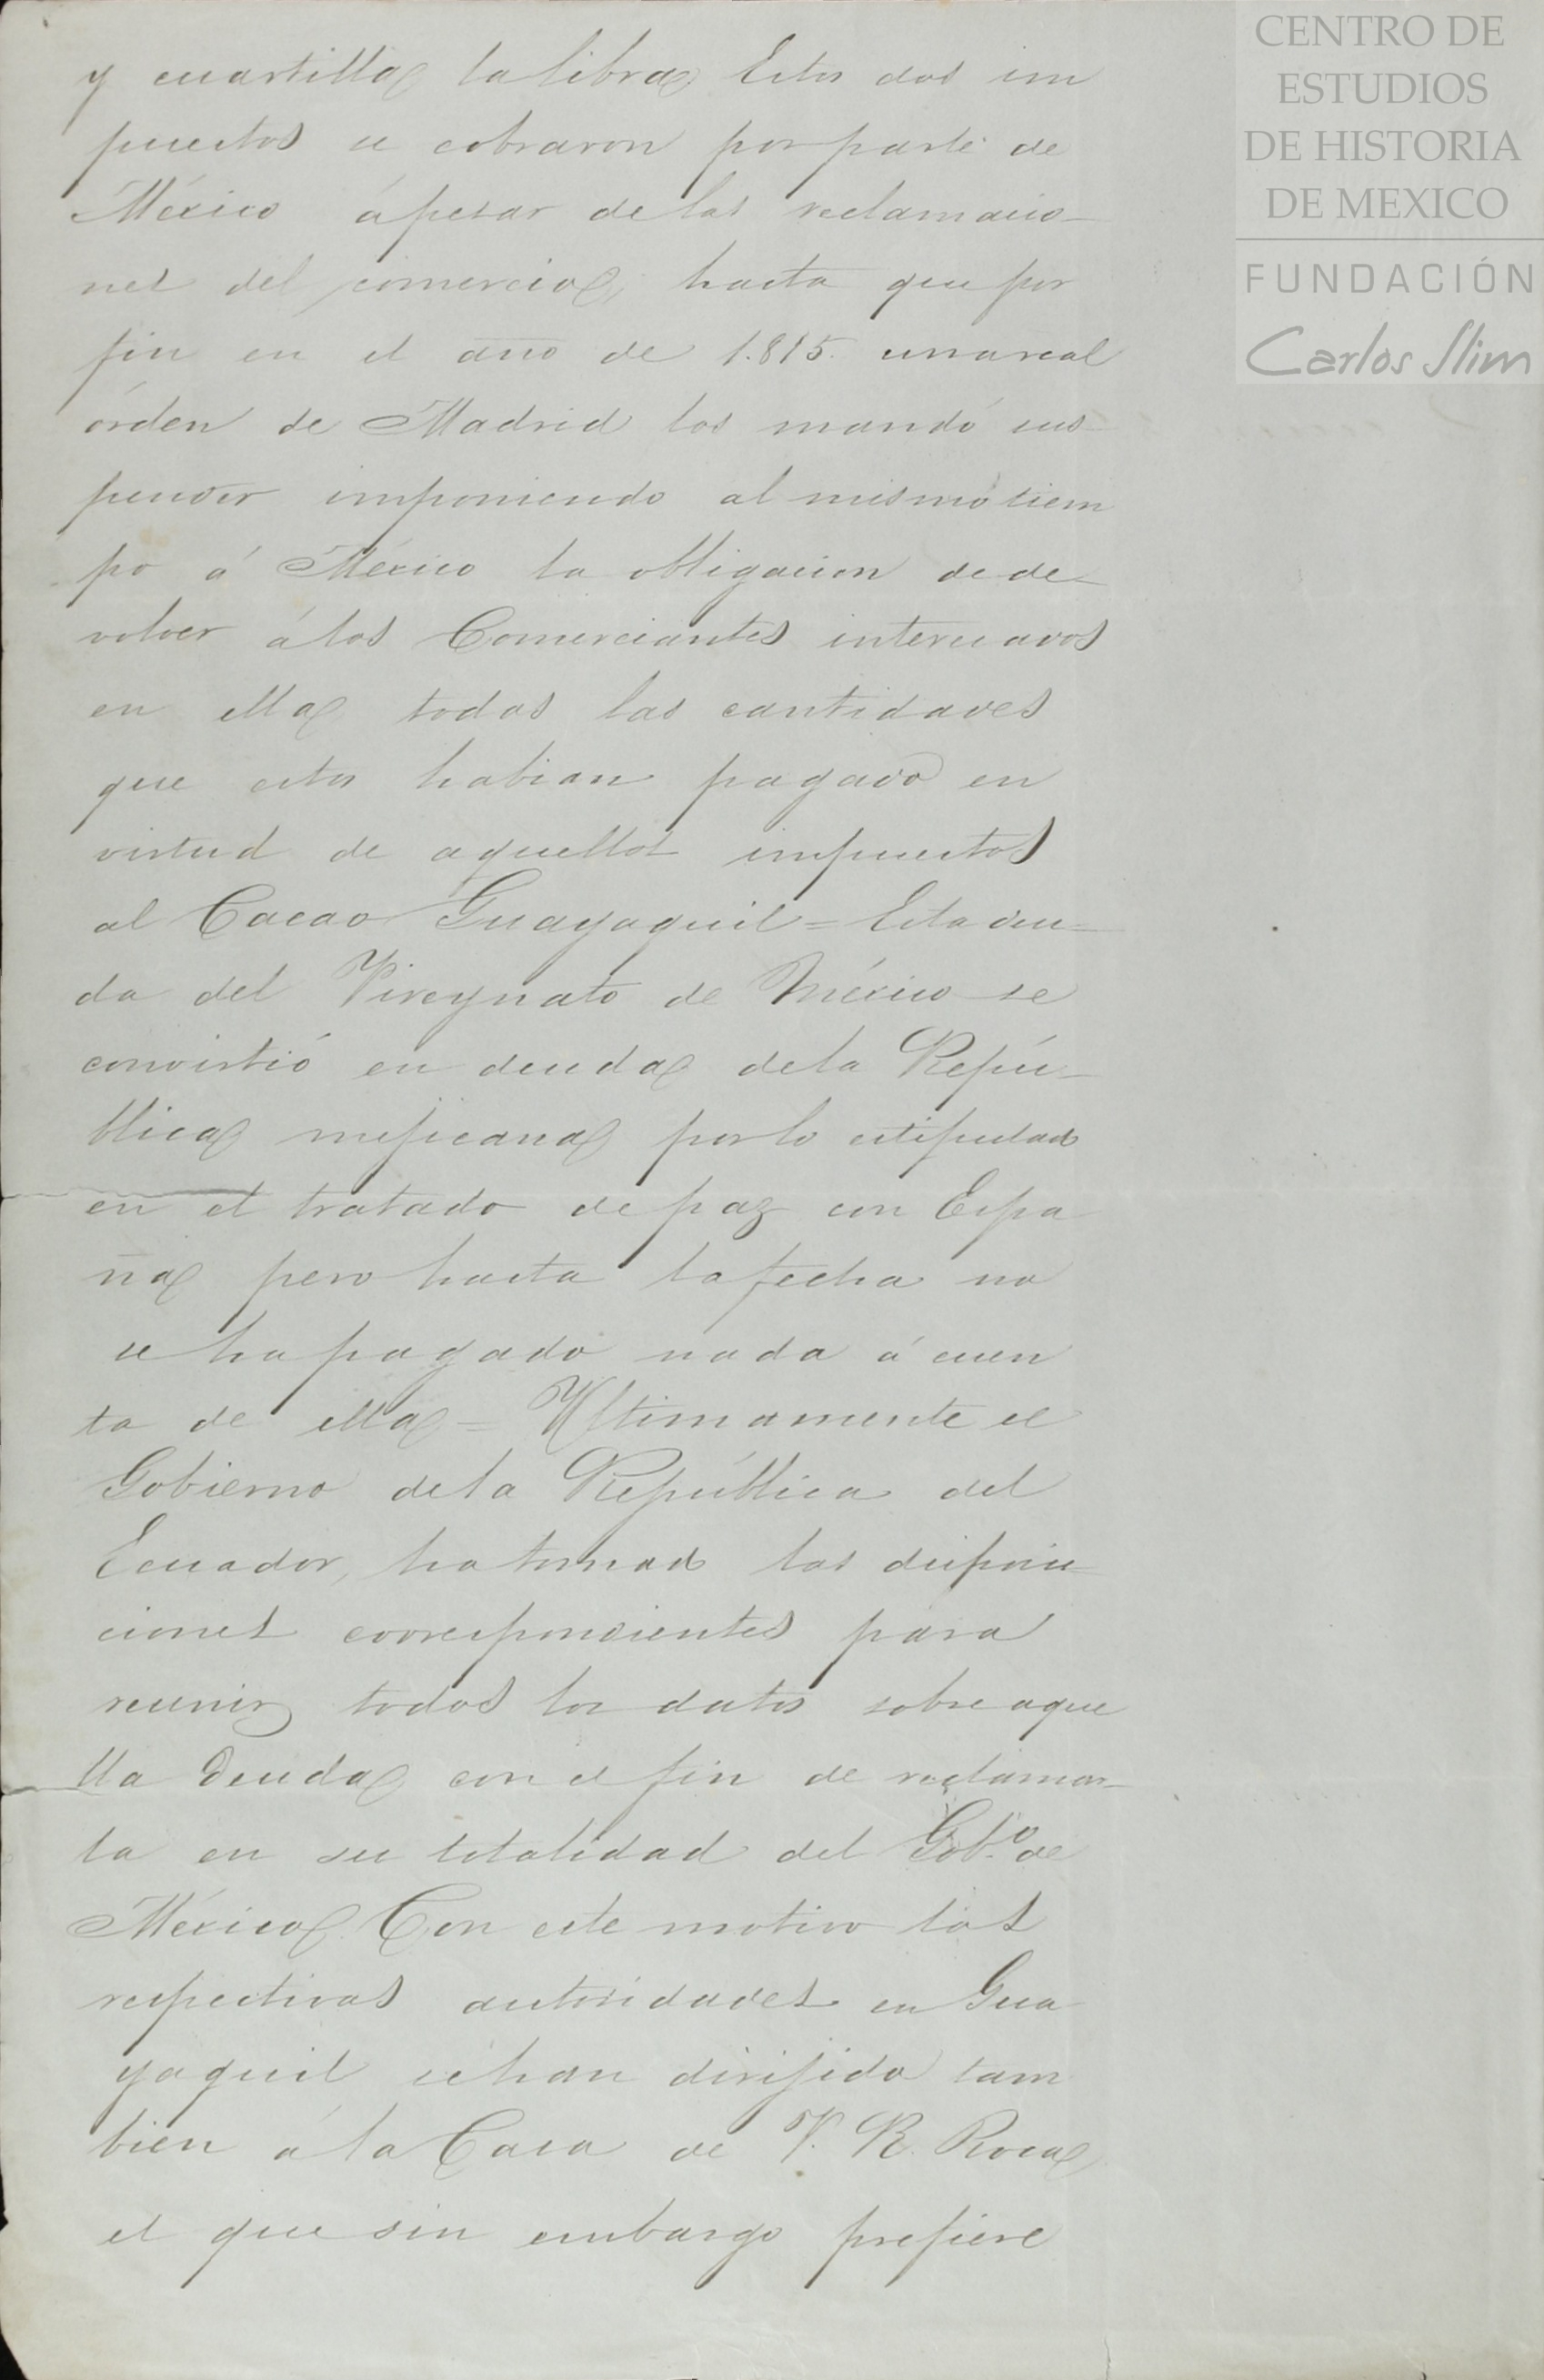 y cuartilla la libra. Estos dos im
puestos se cobraron por parte de
México ápesar de las reclamacio-
nes del comercio, hasta que por
fin en el año de 1.815. una real
órden de Madrid los mandó sus-
pender imponiendo al mismo tiem
po á México la obligacion de de-
volver á los Comerciantes interesados
en ella todas las cantidades
que estos habian pagado en
virtud de aquellos impuestos
al Cacao Guayaquil = Esta deu-
da del Vireynato de México se
convirtió en deuda de la Repú-
blica mejicana por lo estipulado
en el tratado de paz con Espa
ña pero hasta la fecha no
se ha pagado nada á cuen
ta de ella = Ultimamente el
Gobierno de la República del
Ecuador, ha tomado las disposi-
ciones correspondientes para
reunir todos los datos sobre aque
lla deuda con el fin de reclamar-
la en su totalidad del Gob.º de
México. Con este motivo las
respectivas autoridades en Gua
yaquil se han dirijido tam
bien á la Casa de V. R. Roca
el que sin embargo prefiere
CENTRO DE
ESTUDIOS
DE HISTORIA
DE MEXICO
FUNDACIÓN
Carlos Slim